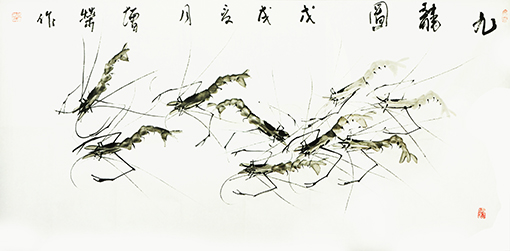 九龍圖戊戌夏月增榮作